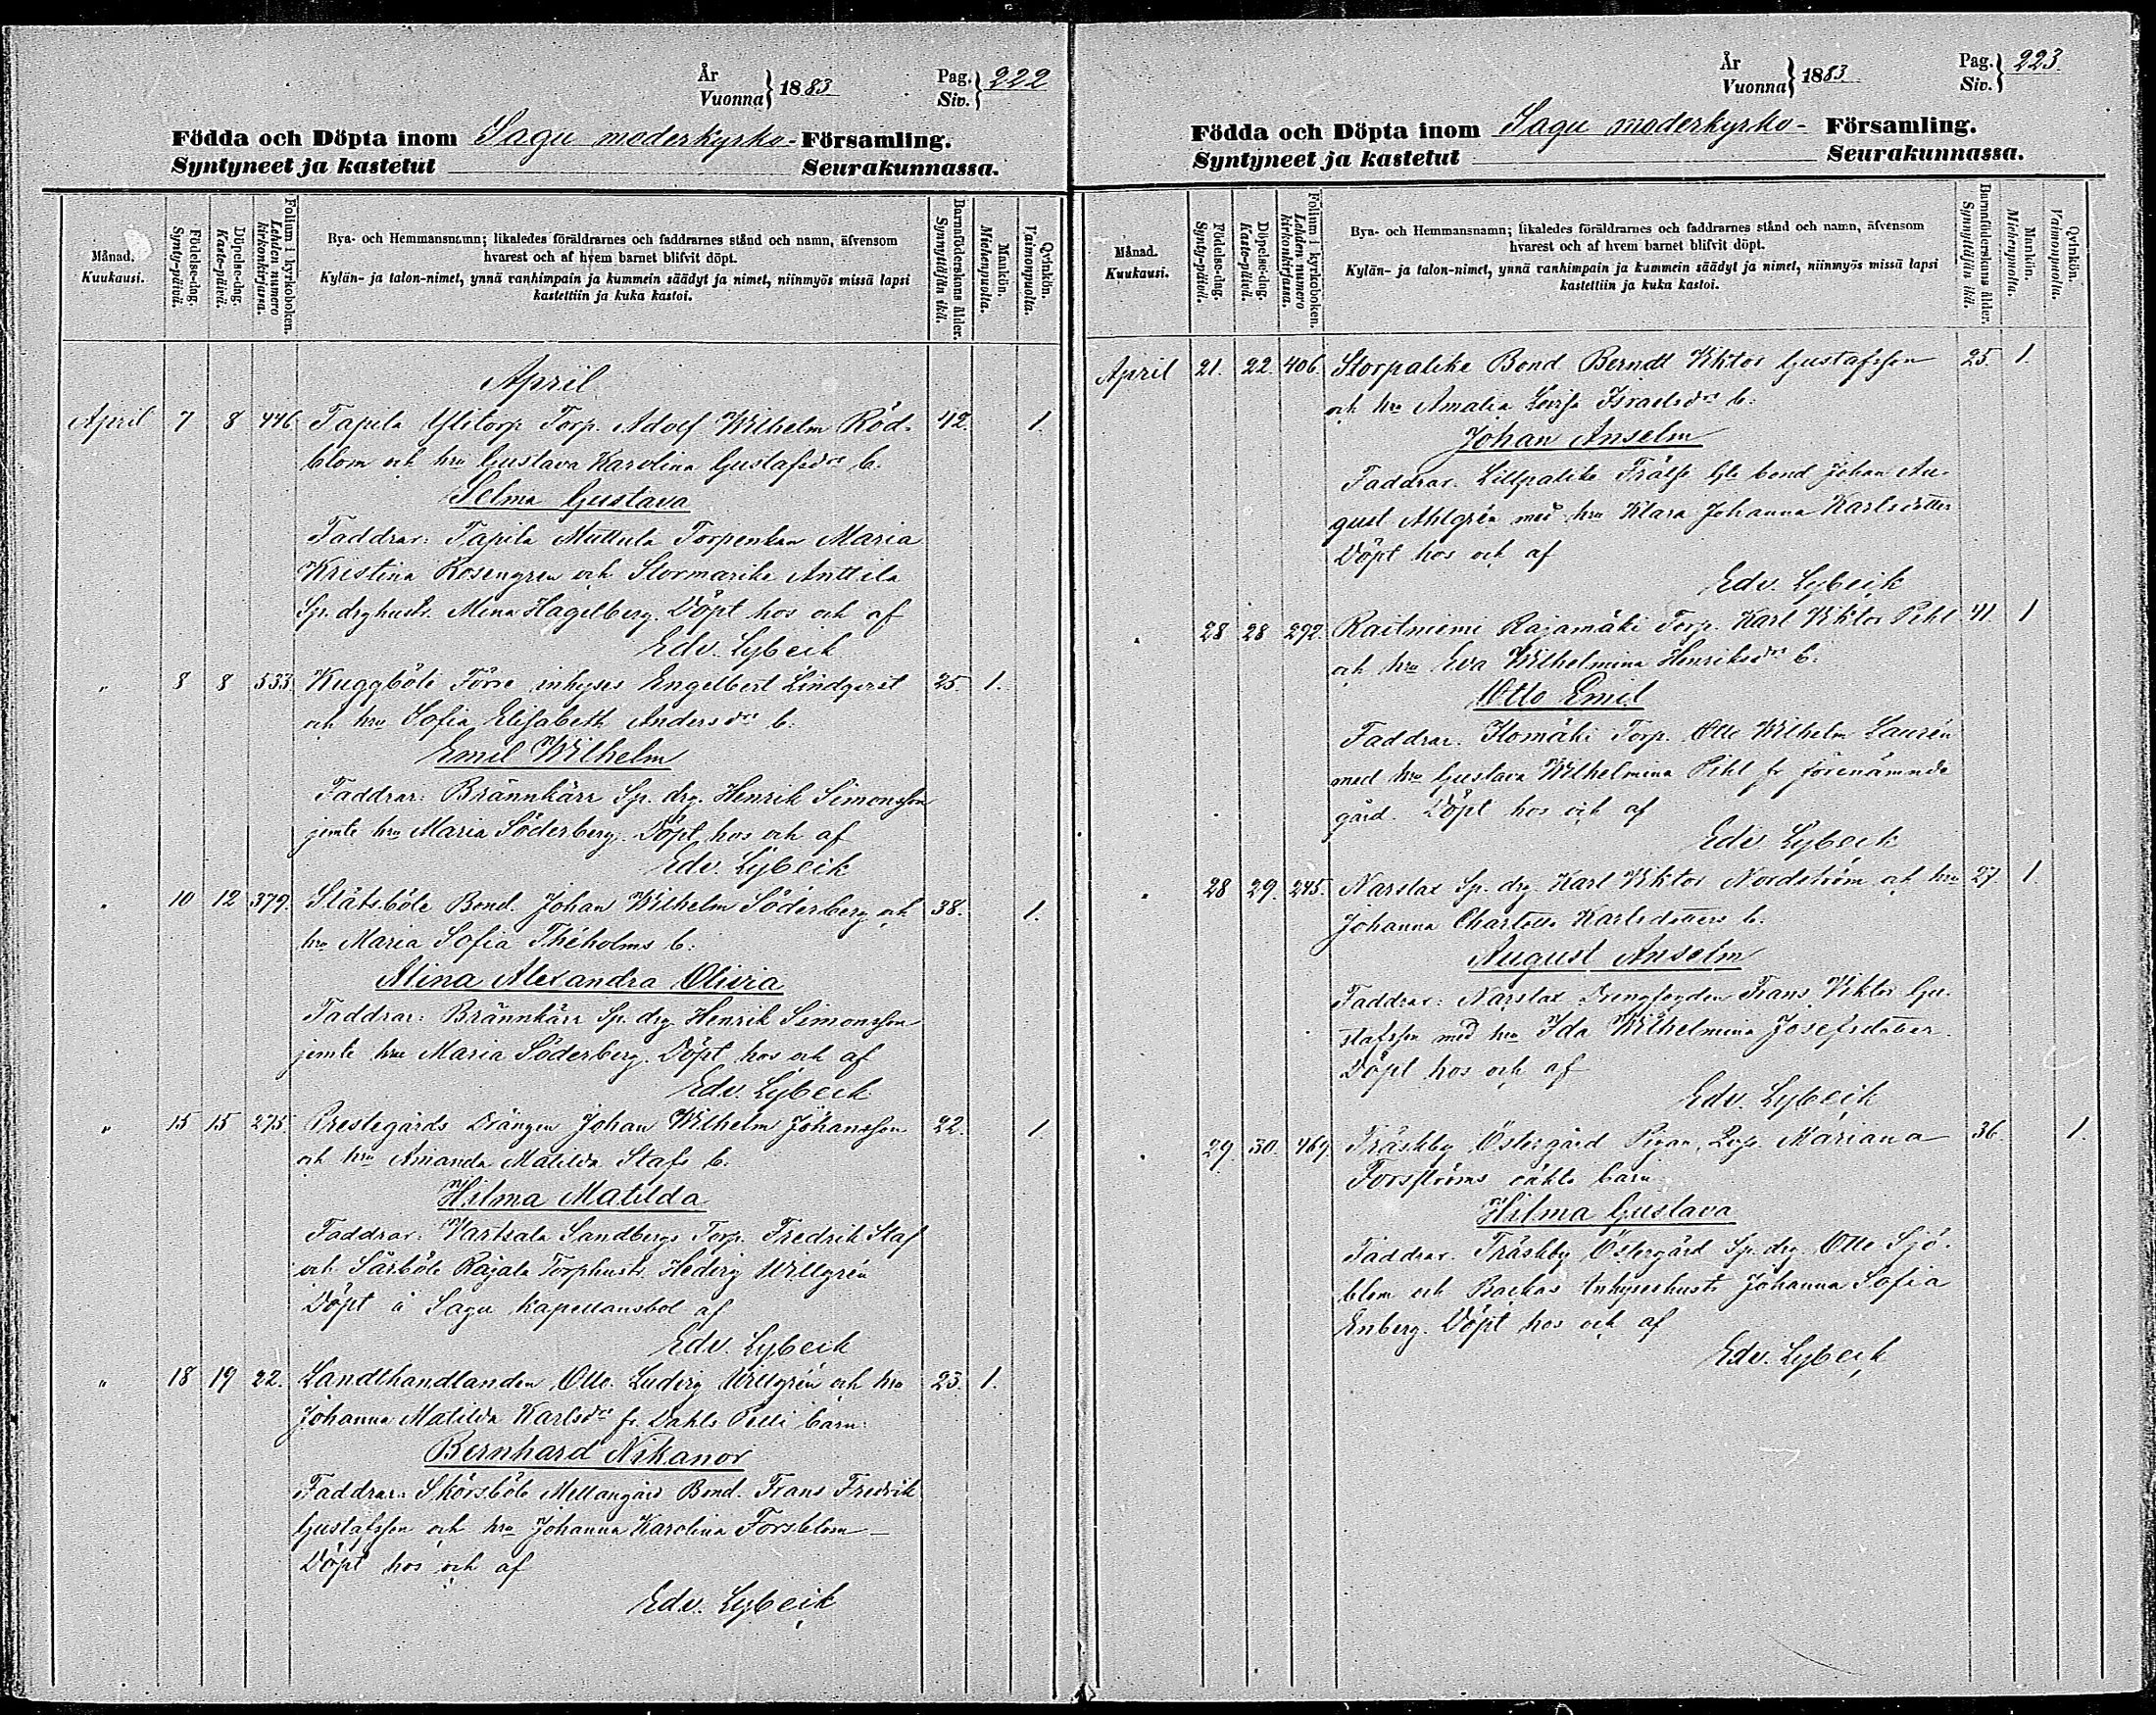 År
Vuonna } 1883
Pag.
Siv. } 222
Födda och Döpta inom Sagu moderkyrko- Församling.
Syntyneet ja kastetut Seurakunnassa.
Månad.
Kuukausi.
Födelse-dag.
Synty-päivä.
Döpelse-dag.
Kaste-päivä.
Folium i kyrkoboken.
Lehden numero kirkonkirjassa.
Bya- och Hemmansnamn; likaledes föräldrarnes och faddrarnes stånd och namn, äfvensom
hvarest och af hvem barnet blifvit döpt.
Kylän- ja talon-nimet, ynnä vanhimpain ja kummein säädyt ja nimet, niinmyös missä lapsi
kastettiin ja kuka kastoi.
Barnaföderskans ålder.
Synnyttäjän ikä.
Mankön.
Miehenpuolta.
Qvinkön.
Vaimonpuolta.
April
April 7 8 446 Tapila Ylitorp Torp. Adolf Wilhelm Röd- 42. 1.
blom och hru Gustava Karolina Gustafsdr b.
Selma Gustava
Faddrar: Tapila Muttula Torpenkan Maria
Kristina Rosengren och Stormarike Anttila
Sp. drghustr. Mina Hagelberg. Döpt hos och af
Edv. Lybeck
" 8 8 533. Kuggböle Förre inhyses Engelbert Lindqvist 25. 1.
och hru Sofia Elisabeth Andersdr b.
Emil Wilhelm
Faddrar: Brännkärr Sp. drg. Henrik Simonsson
jemte hru Maria Söderberg. Döpt hos och af
Edv. Lybeck
" 10 12 379. Slätsböle Bond. Johan Wilhelm Söderberg och 38. 1.
hru Maria Sofia Théholms b.
Alina Alexandra Olivia
Faddrar: Brännkärr Sp. drg Henrik Simonsson
jemte hru Maria Söderberg. Döpt hos och af
Edv. Lybeck
" 15 15 275. Prestegårds Drängen Johan Wilhelm Johansson 22. 1.
och hru Amanda Matilda Stafs b.
Hilma Matilda
Faddrar: Vartsala Sandbergs Torp. Fredrik Staf
och Särböle Rajala Torphustr. Hedvig Willgrén
Döpt å Sagu Kapellansbol af
Edv. Lybeck
" 18 19 22. Landthandlanden Otto Ludvig Willgrén och hru 23. 1.
Johanna Matilda Karlsdr fr. Dahls Pelli barn
Bernhard Nikanor
Faddrar: Skörsböle Mellangård Bond. Frans Fredrik
Gustafsson och hru Johanna Karolina Forsblom
Döpt hos och af
Edv. Lybeck
År
Vuonna } 1883
Pag.
Siv. } 223.
Födda och Döpta inom Sagu moderkyrko- Församling.
Syntyneet ja kastetut Seurakunnassa.
Månad.
Kuukausi.
Födelse-dag.
Synty-päivä.
Döpelse-dag.
Kaste-päivä.
Folium i kyrkoboken.
Lehden numero kirkonkirjassa.
Bya- och Hemmansnamn; likaledes föräldrarnes och faddrarnes stånd och namn, äfvensom
hvarest och af hvem barnet blifvit döpt.
Kylän- ja talon-nimet, ynnä vanhimpain ja kummein säädyt ja nimet, niinmyös missä lapsi
kastettiin ja kuka kastoi.
Barnaföderskans ålder.
Synnyttäjän ikä.
Mankön.
Miehenpuolta.
Qvinkön.
Vaimonpuolta.
April 21. 22. 406. Storpalike Bond Berndt Viktor Gustafsson 25. 1.
och hru Amalia Lovisa Israelsdr b.
Johan Anselm
Faddrar. Lillpalike Frälse Gle bond Johan Au-
gust Ahlgrén med hru Klara Johanna Karlsdotter
Döpt hos och af
Edv. Lybeck
" 28 28 292. Raitniemi Rajamäki Torp. Karl Viktor Pihl 41. 1
och hru Eva Wilhelmina Henriksdr b.
Otto Emil
Faddrar. Komäki Torp. Otto Wilhelm Laurén
med hru Gustava Wilhelmina Pihl fr förenämnde
gård. Döpt hos och af
Edv. Lybeck
" 28 29. 245. Narslax Sp. drg Karl Viktor Nordström och hru 27 1.
Johanna Charlotta Karlsdotters b.
August Anselm
Faddrar: Narslax Drengfogden Frans Viktor Gu-
stafsson med hru Ida Wilhelmina Josefsdotter
Döpt hos och af
Edv. Lybeck
" 29. 30. 469. Träskby Östergård Pigan Mariana 36. 1.
Forsströms oäkta barn
Hilma Gustava
Faddrar. Träskby Östergård Sp. drg. Otto Sjö-
blom och Backas Inhyseshustr Johanna Sofia
Enberg. Döpt hos och af
Edv. Lybeck